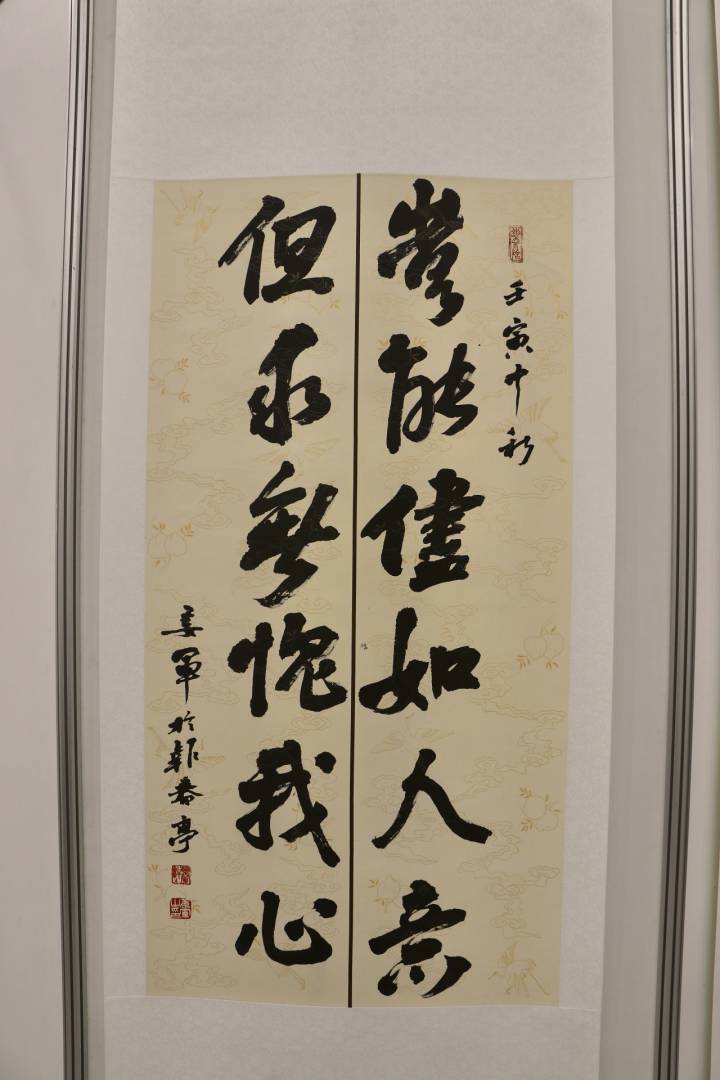 壬寅中秋
豈能儘如人意
但求無愧我心
姜軍於報春亭